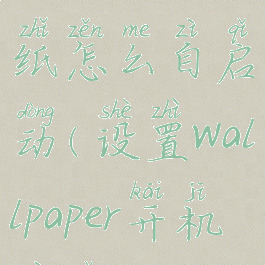 zhǐ zěn me zì qǐ
纸怎么自启
dòng shè zhì
动(设置wal
lpaper开机
kāi jī